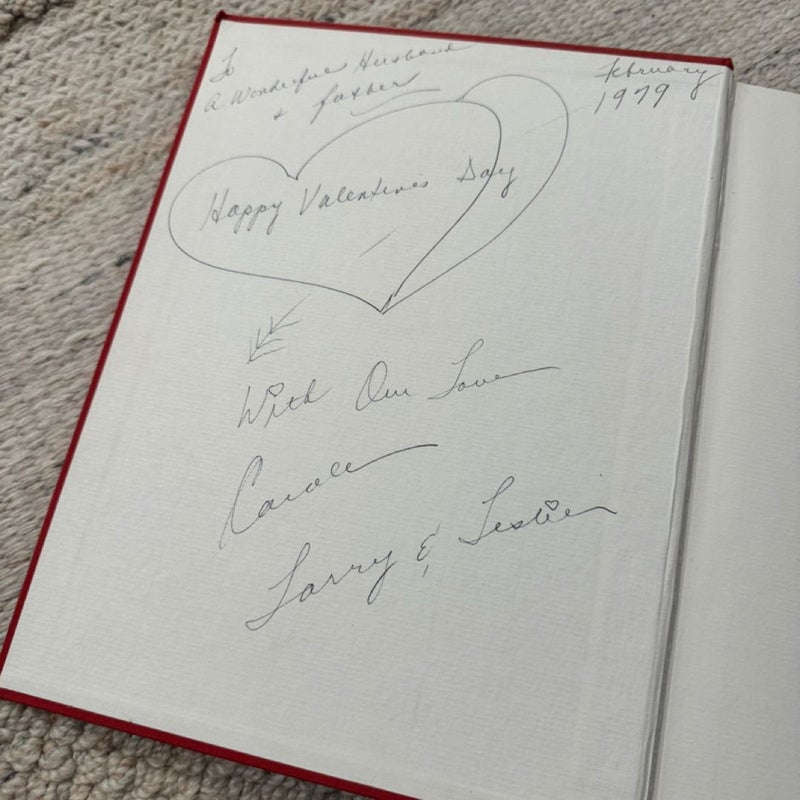 To
A Wonderful Husband
& father
February
1979
Happy Valentines Day
With Our Love
Carole
Larry & Leslie